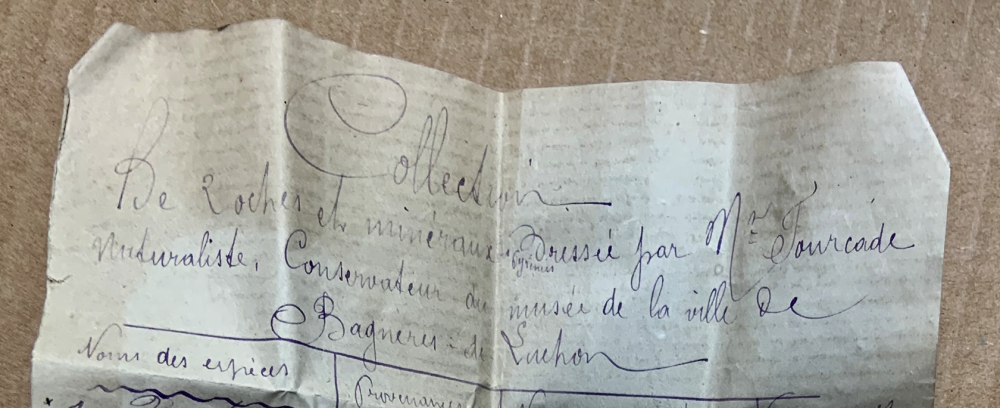 Collection
De Roches et minéraux Dressée par Mr Fourcade
Pyrénées
Naturaliste, Conservateur du musée de la ville De
Bagnères-de Luchon
Noms des espèces
Provenances